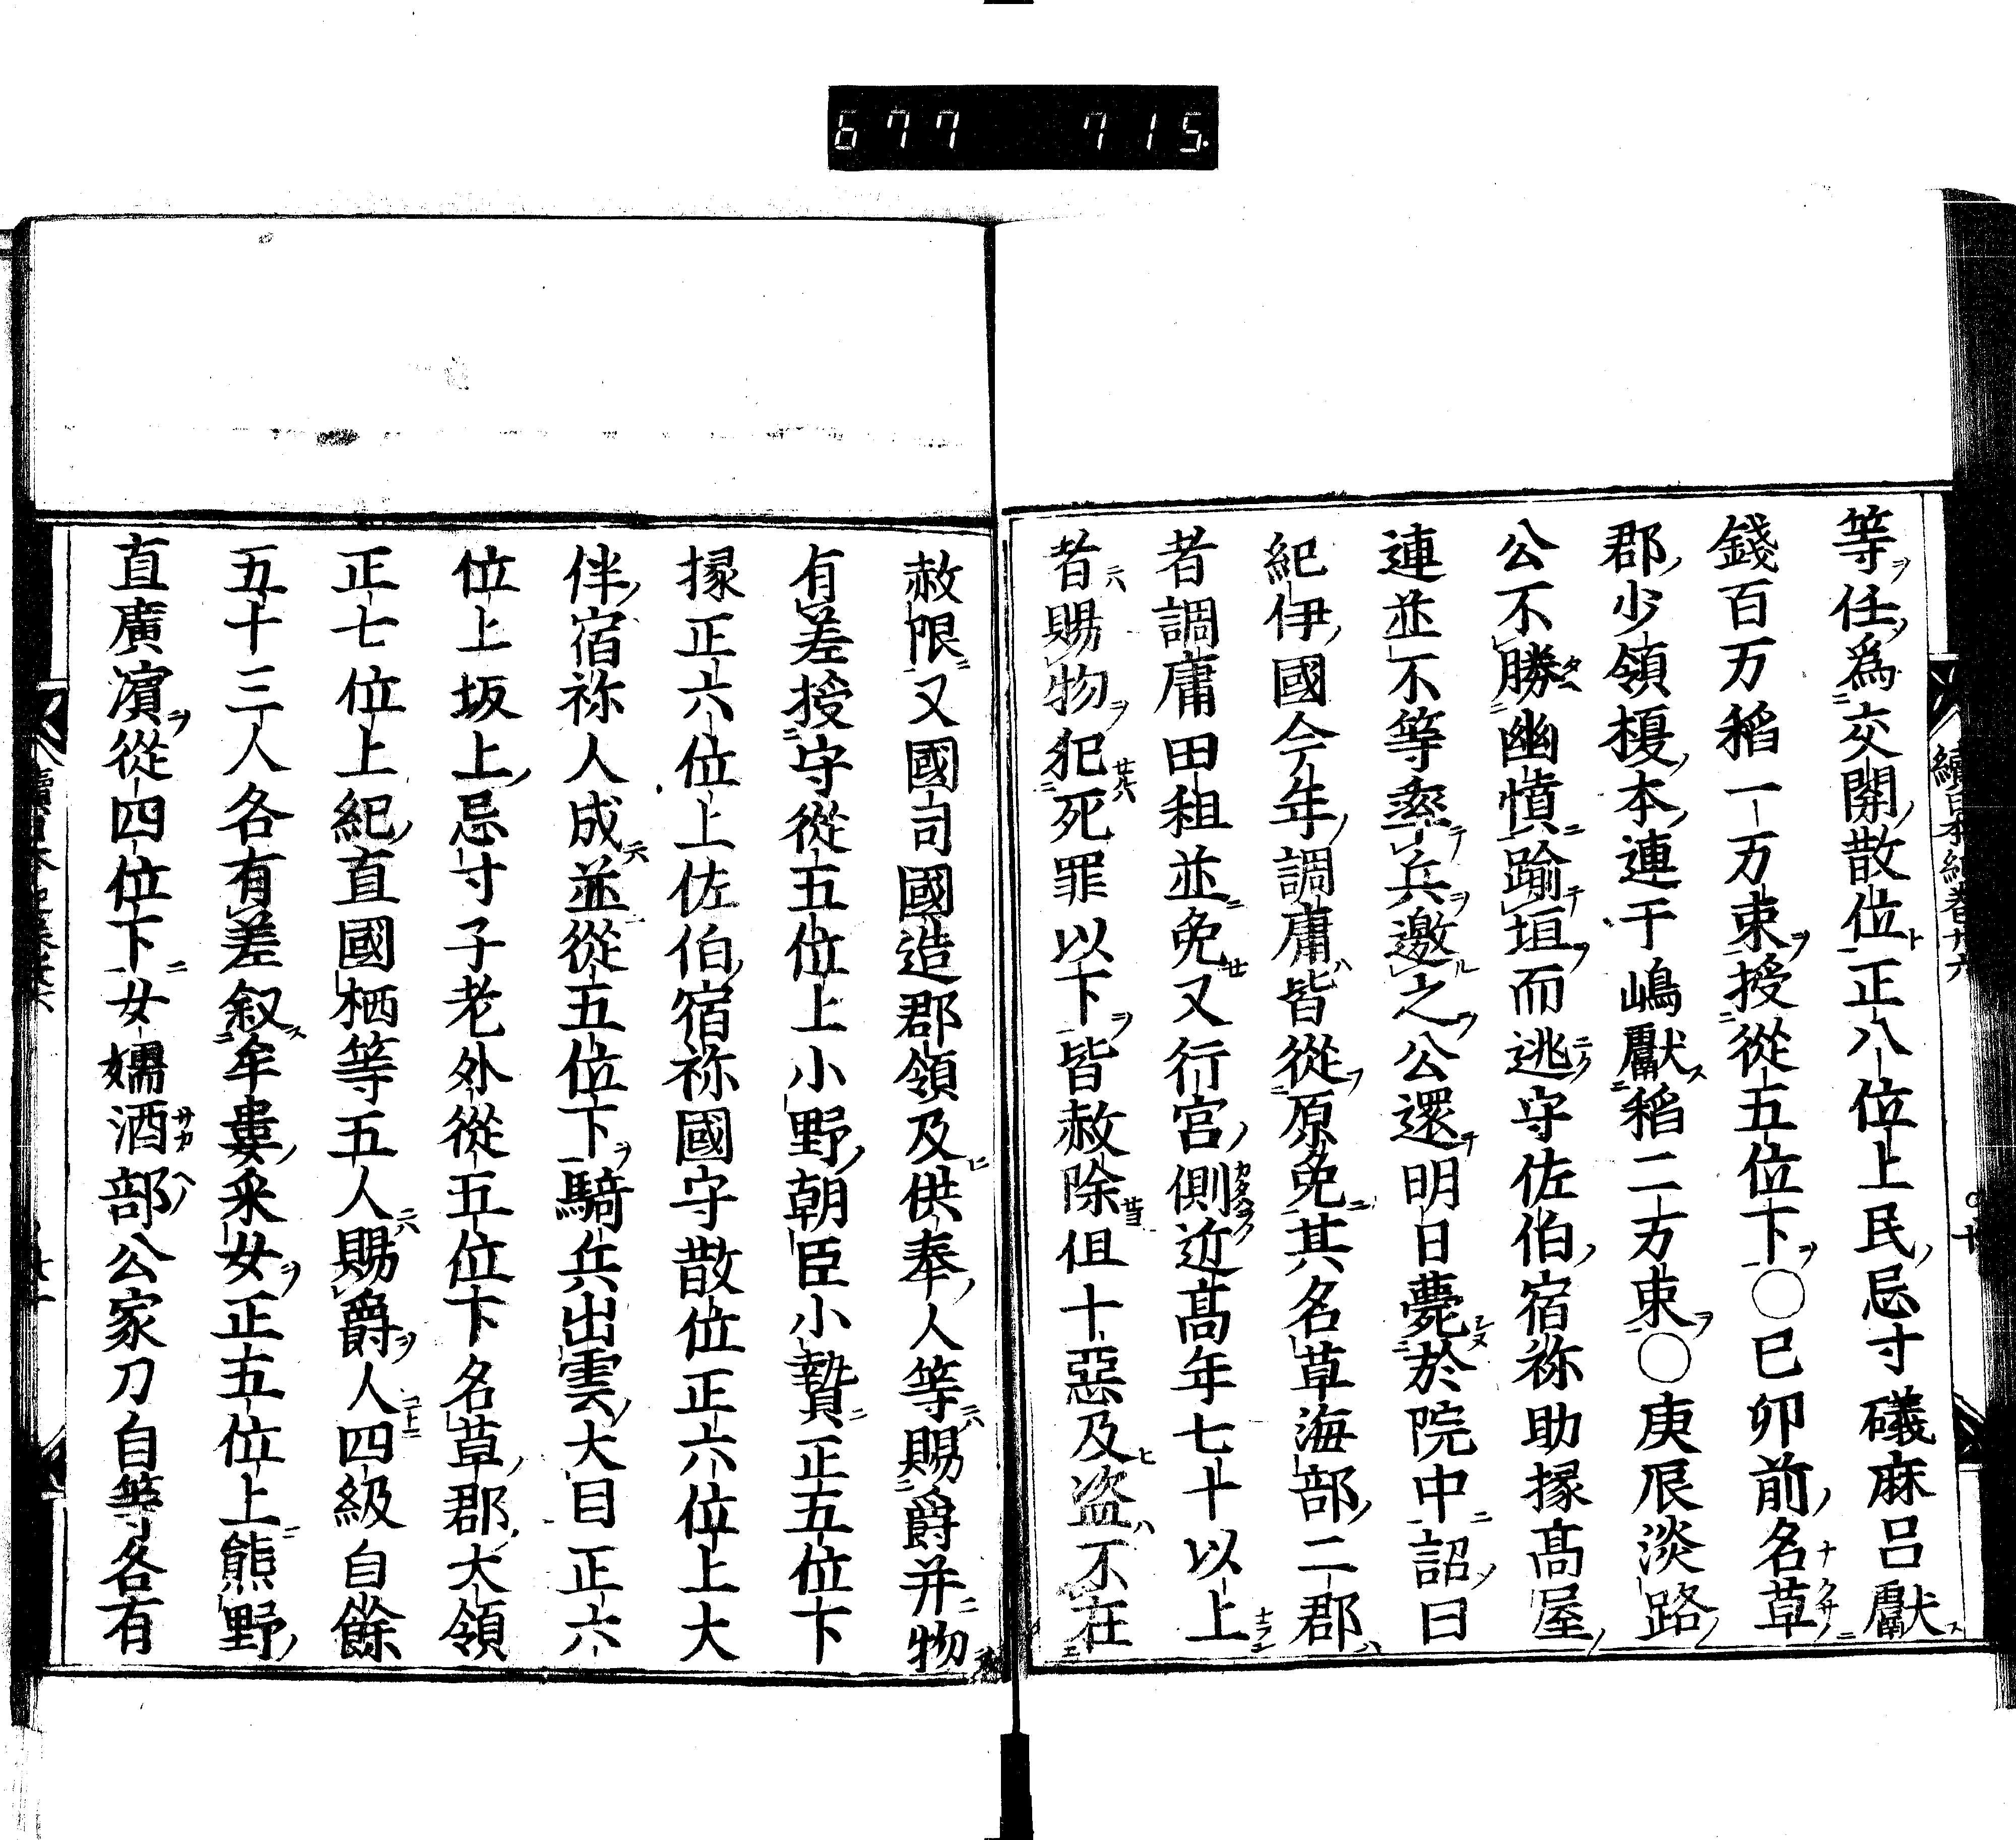 677 715.
等任爲交關散位正八位上民忌寸礒麻呂獻
錢百万稻一万束授從五位下○巳卯前名草
郡少領榎本連千嶋獻稻二万束○庚辰淡路
公不勝幽憤踰垣而逃守佐伯宿祢助掾髙屋
連並不等率兵邀之公還明日薨於院中詔曰
紀伊國今年調庸皆從原免其名草海部二郡
者調庸田租並免又行宫側近髙年七十以上
者賜物犯死罪以下皆赦除但十惡及盗不在
赦限又國司國造郡領及供奉人等賜爵并物
有差授守從五位上小野朝臣小贄正五位下
掾正六位上佐伯宿祢國守散位正六位上大
伴宿祢人成並從五位下騎兵出雲大目正六
位上坂上忌寸子老外從五位下名草郡大領
正七位上紀直國栖等五人賜爵人四級自餘
五十三人各有差叙牟婁釆女正五位上熊野
直廣濵從四位下女嬬酒部公家刀自等各有